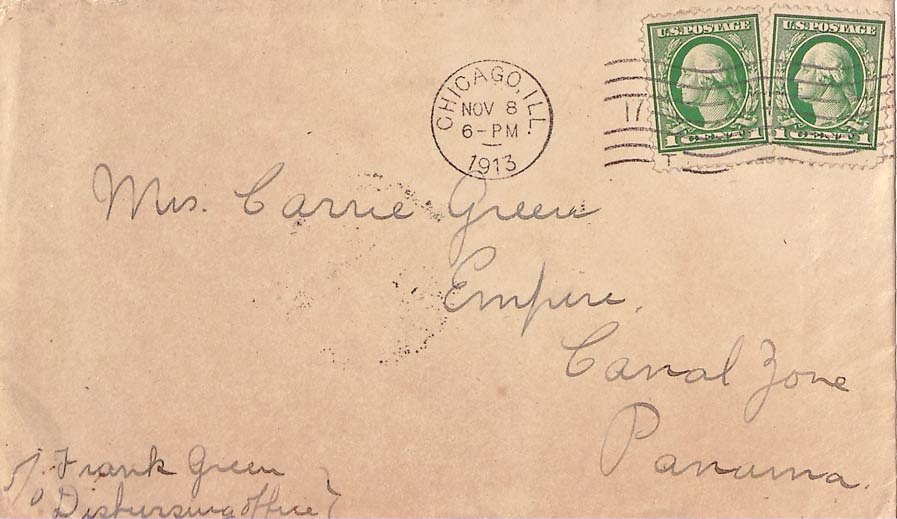 U.S. POSTAGE U.S. POSTAGE
1 CENT 1 1 CENT 1
CHICAGO, ILL.
NOV 8
6-PM
1913
17
Mrs. Carrie Green
Empire,
Canal Zone
Panama.
c/o Frank Green
Disbursing office